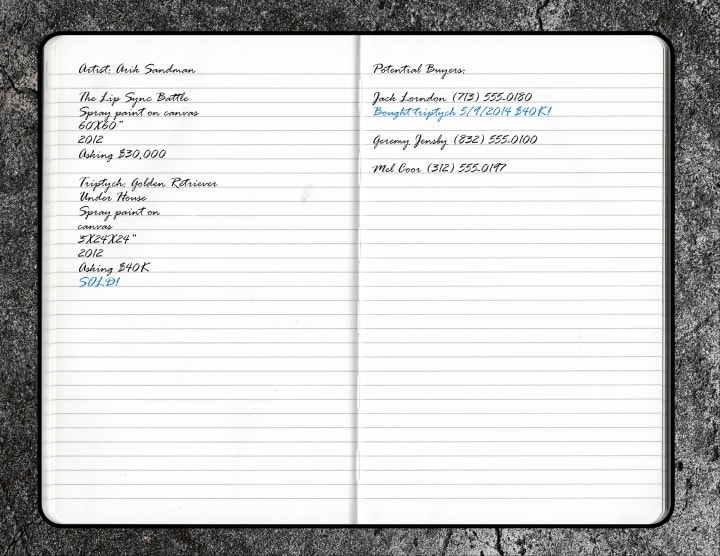 Artist: Arik Sandman
The Lip Sync Battle
Spray paint on canvas
60X60"
2012
Asking $30,000
Triptych: Golden Retriever
Under House
Spray paint on
canvas
3X24X24"
2012
Asking $40K
SOLD!
Potential Buyers:
Jack Lorndon (713) 555-0180
Bought triptych 5/9/2014 $40K!
Geremy Jensby (832) 555-0100
Mel Coor (312) 555-0197